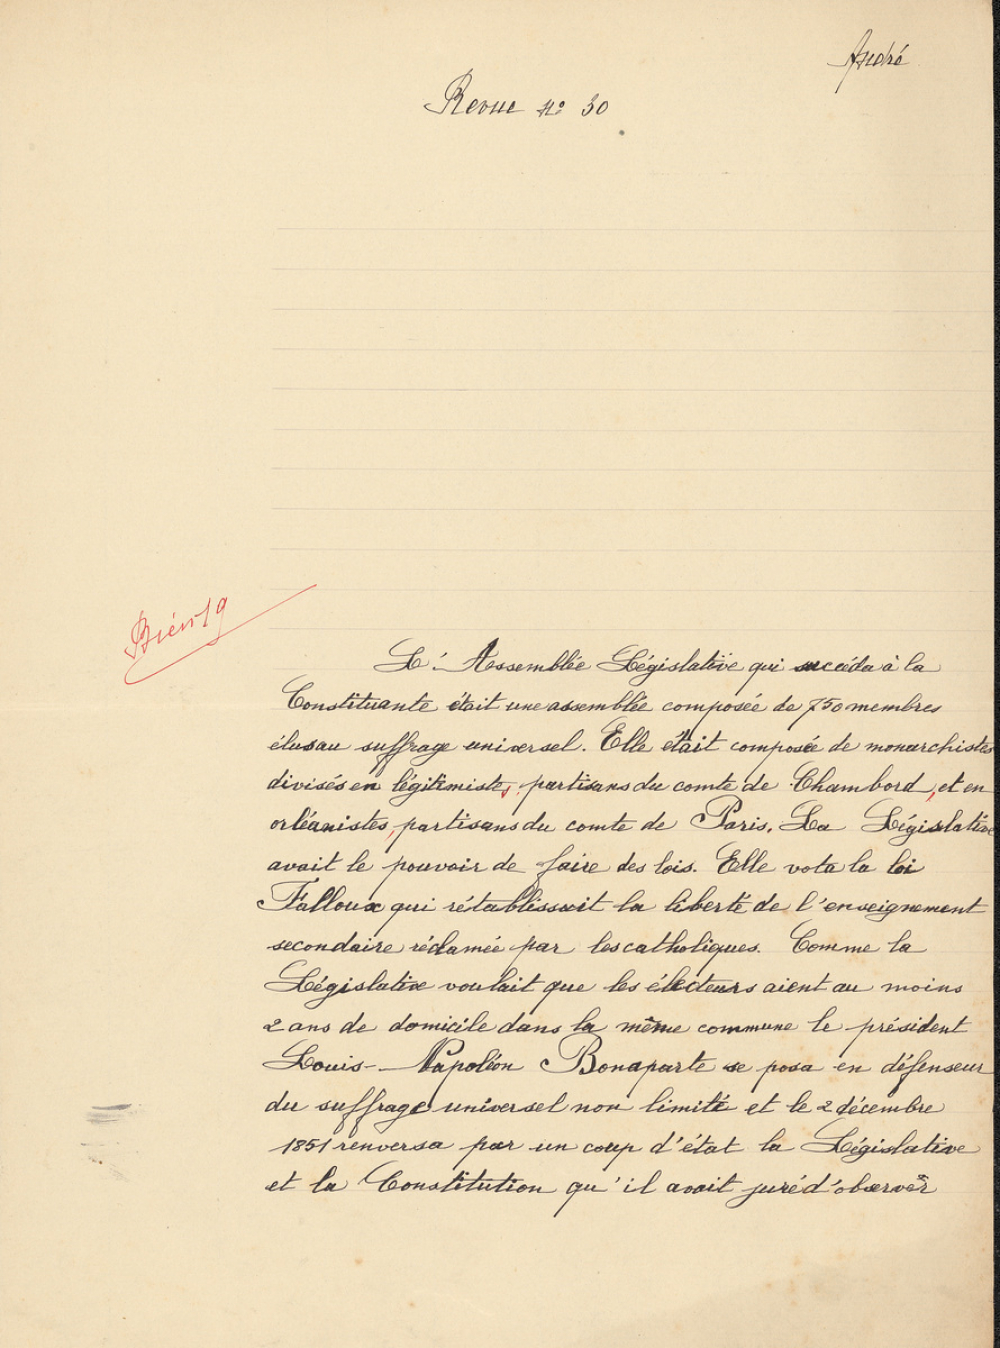 André
Revue n° 30
Bien 19
L'Assemblée Législative qui succéda à la
Constituante était une assemblée composée de 750 membres
élus au suffrage universel. Elle était composée de monarchistes
divisés en légitimistes, partisans du comte de Chambord, et en
orléanistes, partisans du comte de Paris. La Législative
avait le pouvoir de faire des lois. Elle vota la loi
Falloux qui rétablissait la liberté de l'enseignement
secondaire réclamée par les catholiques. Comme la
Législative voulait que les électeurs aient au moins
2 ans de domicile dans la même commune le président
Louis-Napoléon Bonaparte se posa en défenseur
du suffrage universel non limité et le 2 décembre
1851 renversa par un coup d'état la Législative
et la Constitution qu'il avait juré d'observer